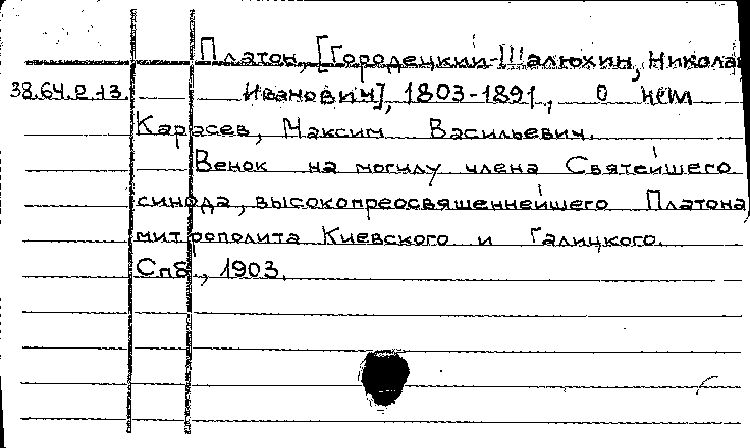 Платон, [Городецкий-Шалюхин, Никола
38.64.2.13. Иванович], 1803-1891, о нем
Карасев, Максим Васильевич.
Венок на могилу члена Святейшего
синода, высокопреосвященнейшего Платона
митрополита Киевского и Галицкого.
Спб., 1903.